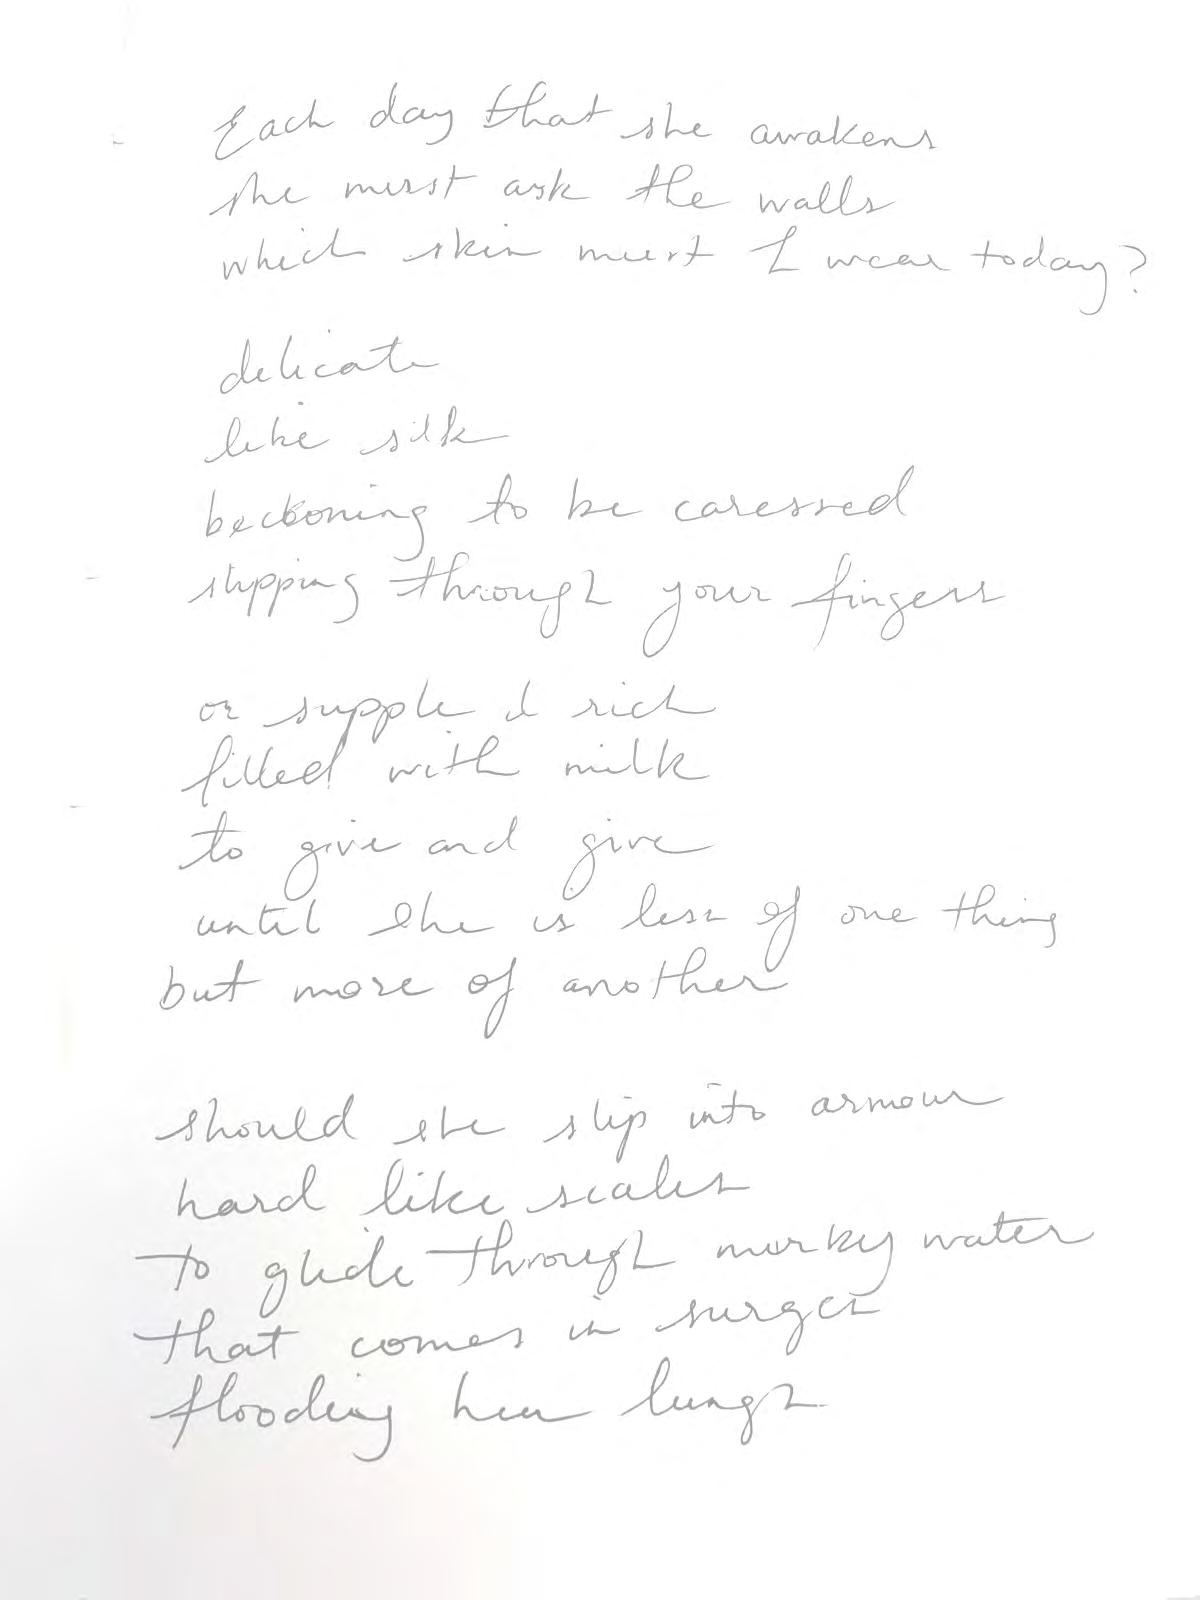 Each day that she awakens
she must ask the walls
which skin must I wear today?
delicate
like silk
beckoning to be caressed
slipping through your fingers
or supple & rich
filled with milk
to give and give
until she is less of one thing
but more of another
should she slip into armour
hard like scales
to glide through murky water
that comes in surges
flooding her lungs